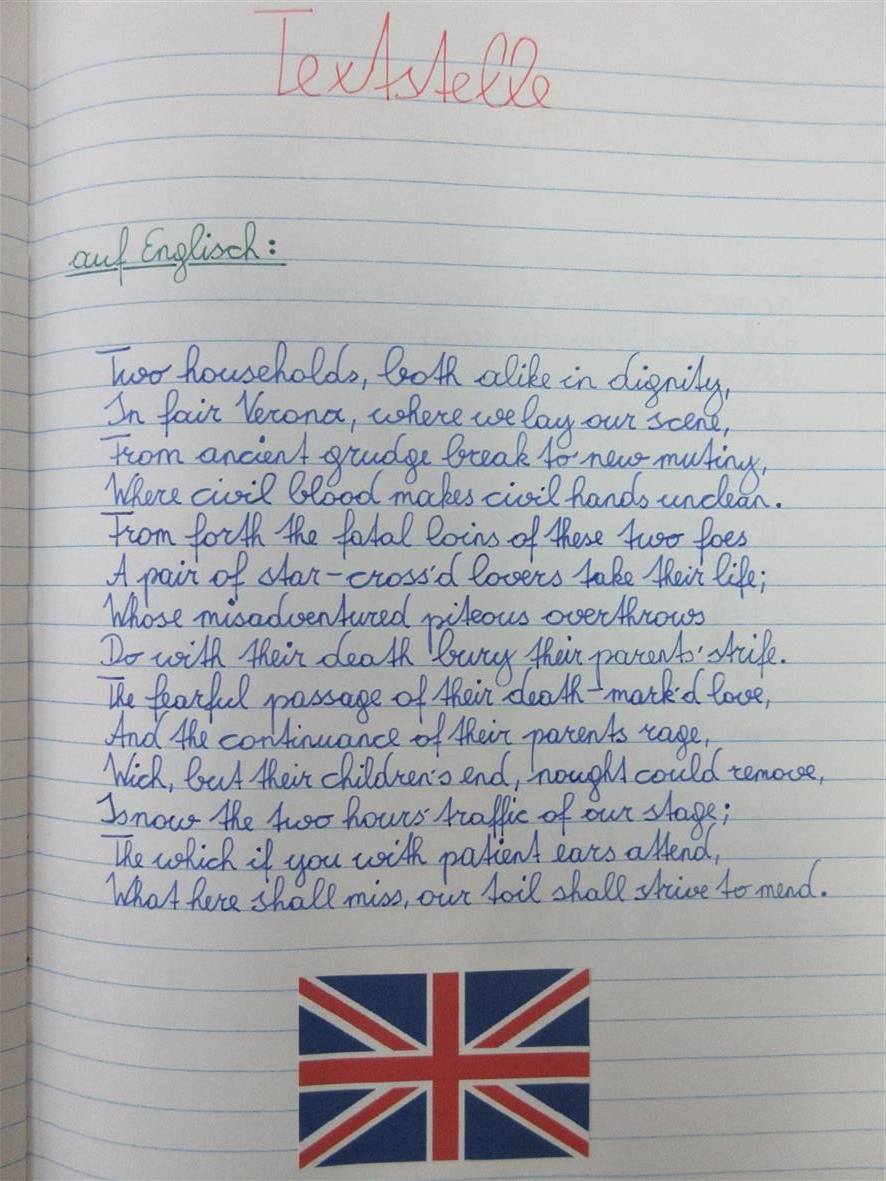 Textstelle
auf Englisch:
Two households, both alike in dignity,
In fair Verona, where we lay our scene,
From ancient grudge break to new mutiny,
Where civil blood makes civil hands unclean.
From forth the fatal loins of these two foes
A pair of star-cross'd lovers take their life;
Whose misadventured piteous overthrows
Do with their death bury their parents' strife.
The fearful passage of their death-mark'd love,
And the continuance of their parents rage,
Wich, but their children's end, nought could remove,
Is now the two hours' traffic of our stage;
The which if you with patient ears attend,
What here shall miss, our toil shall strive to mend.